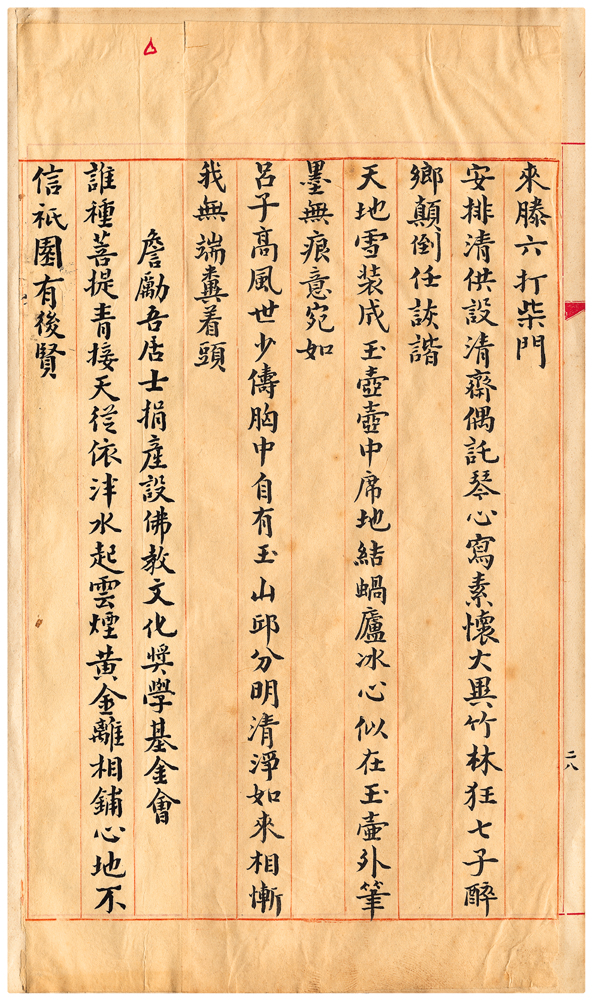 來滕六打柴門
安排清供設清齋偶託琴心寫素懷大異竹林狂七子醉
鄉顛倒任詼諧
天地雪装成玉壺壺中席地結蝸廬冰心似在玉壺外筆
墨無痕意宛如
呂子高風世少儔胸中自有玉山邱分明清淨如來相慚
我無端糞着頭
詹勵吾居士捐產設佛教文化奬學基金會
誰種菩提青接天從依泮水起雲煙黃金離相鋪心地不
信祇園有後賢
二八